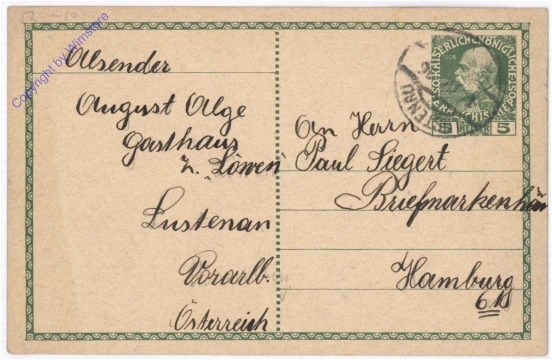 Absender
August Alge
Gasthaus
z. Löwen
Lustenau
Vorarlb.
Österreich
An Herrn
Paul Siegert
Briefmarkenhaus
Hamburg
6
KAISERLICHE KÖNIGLICHE
5 5
Copyright by Wimstore